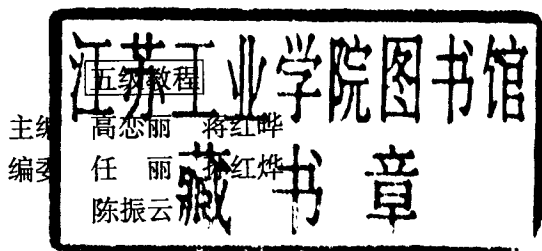 江苏工业学院图书馆
藏书章
五级教程
主编 高恋丽 蒋红晔
编委 任 丽 红烨
陈振云